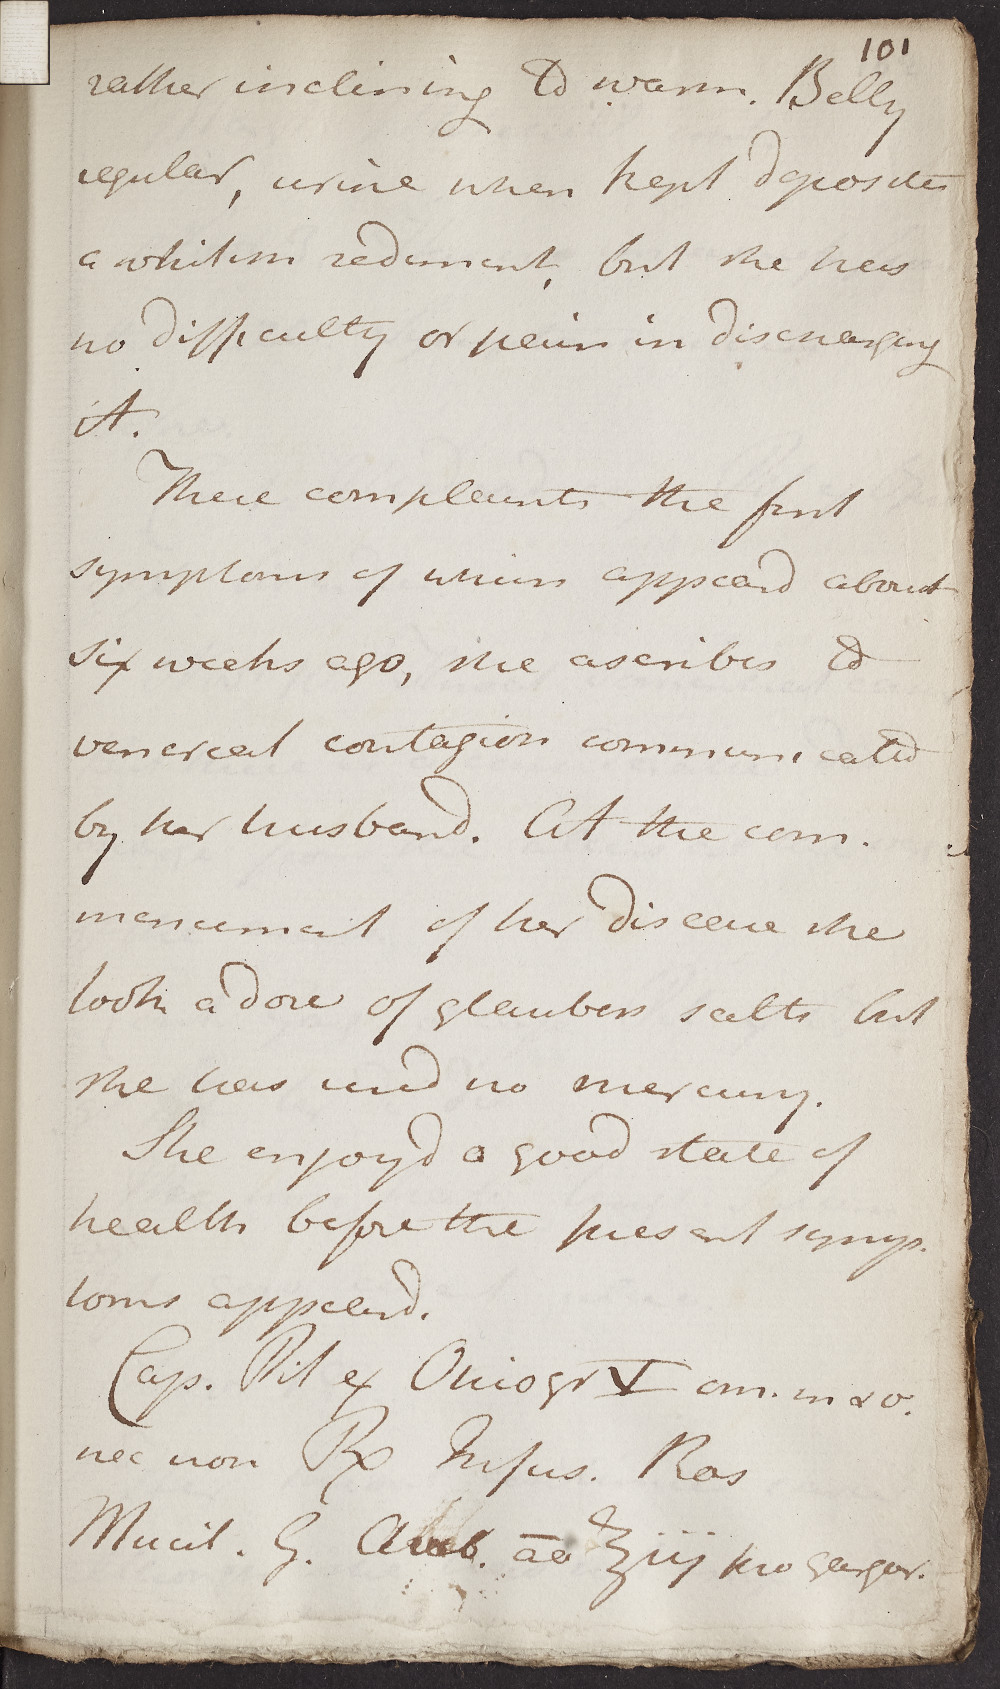 101
rather inclining to warm. Belly
regular, urine when kept deposites
a whitish sediment, but she has
no difficulty or pain in discharging
it.
These complaints the first
symptoms of which appeard about
six weeks ago, she ascribes to
venereal contagion communicated
by her husband. At the com-
mencement of her disease she
took a dose of glaubers salts but
she has used no mercury.
She enjoy'd a good state of
health before the present symp-
toms appeard.
Cap. Pil ex Opio gr V om. m & v.
nec non Rx Infus. Ros
Mucil. G. Arab. aa ℥iij pro gargar.